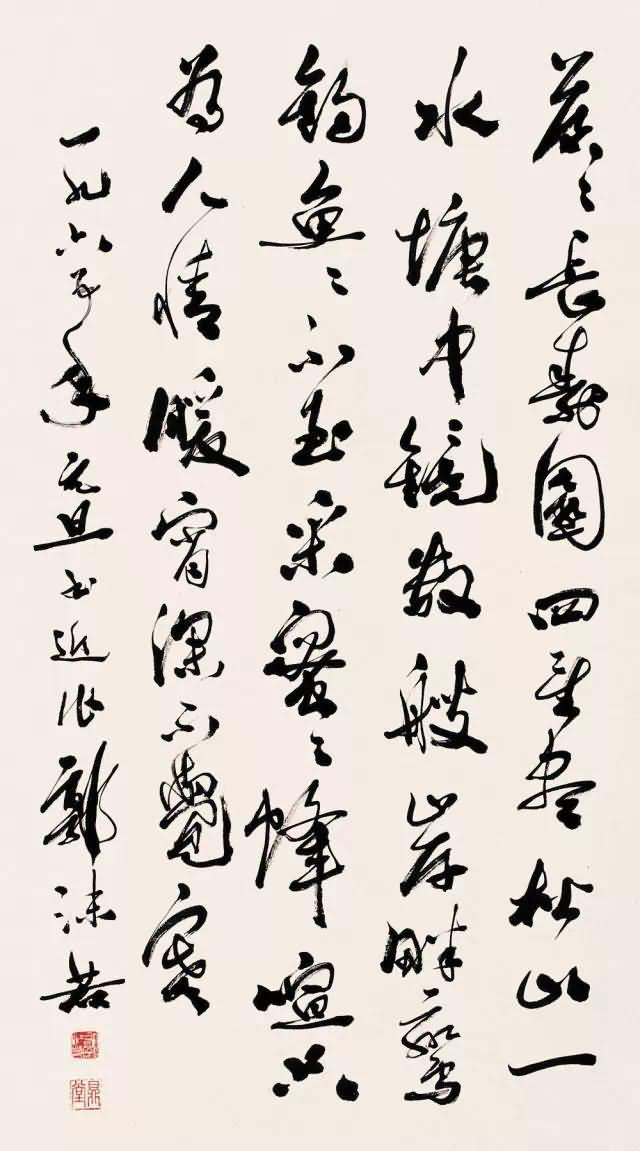 蒼〻長壽園四望盡松山一
水塘中鏡數艘岸畔鸞
釣魚〻不至采蜜〻蜂喧只
為人情暖宵深不覺寒
一九六五年元旦書近作郭沫若